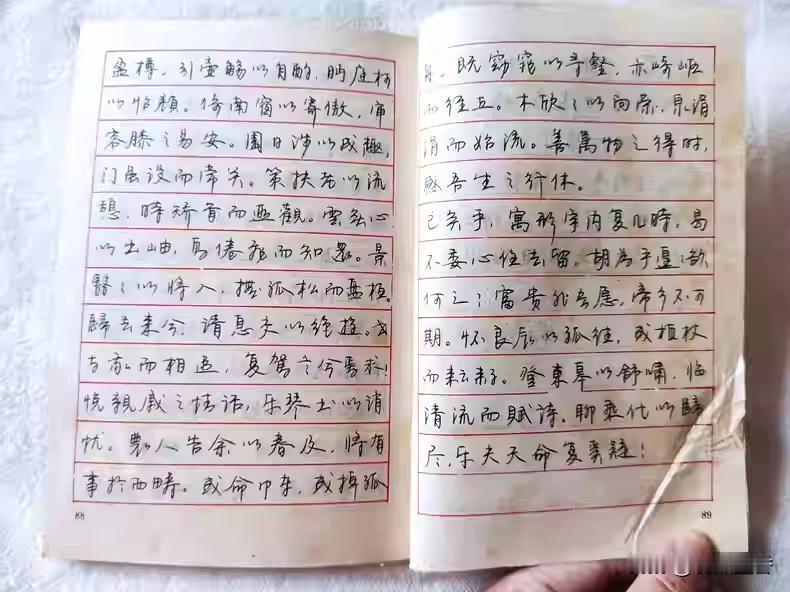 盈樽。引壶觞以自酌,眄庭柯
以怡颜。倚南窗以寄傲,审
容膝之易安。園日涉以成趣,
门虽设而常关。策扶老以流
憩,時矫首而遐觀。雲无心
以出岫,鸟倦飛而知還。景
翳々以将入,撫孤松而盘桓。
歸去来兮,请息交以绝遊。世
与我而相遗,复驾言兮焉求!
悦親戚之情话,乐琴书以消
忧。農人告余以春及,将有
事於西畴。或命巾车,或棹孤
88
舟。既窈窕以寻壑,亦崎岖
而径丘。木欣々以向荣,泉涓
涓而始流。善萬物之得时,
感吾生之行休。
已矣乎,寓形宇内复几時,曷
不委心任去留,胡為乎遑々欲
何之?富贵非吾愿,帝乡不可
期。怀良辰以孤往,或植杖
而耘耔。登東皋以舒嘯,临
清流而赋詩。聊乘化以歸
尽,乐夫天命复奚疑!
89